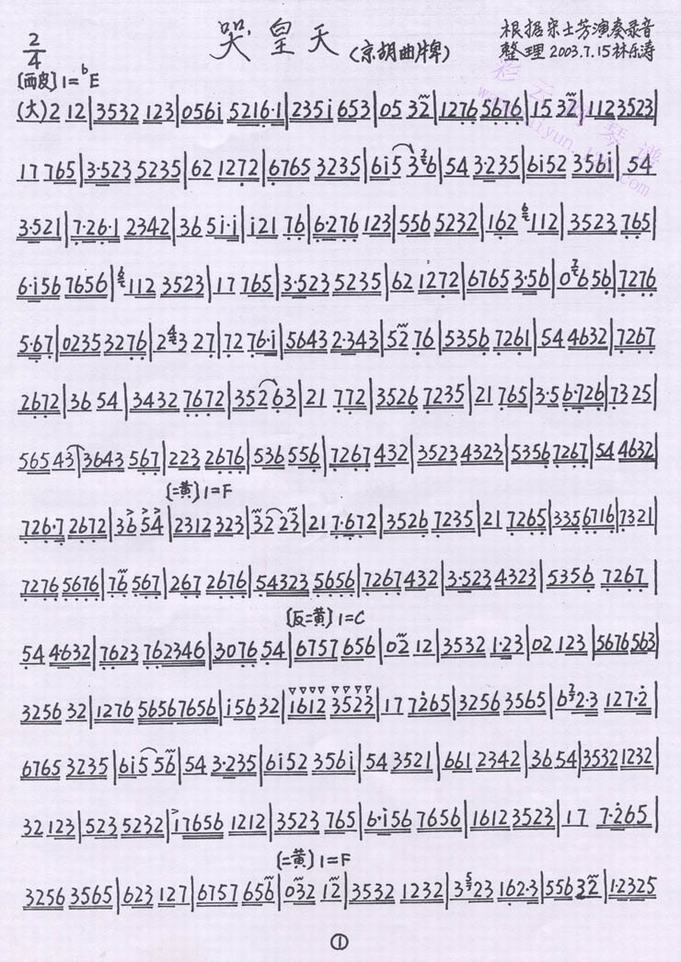 2/4
哭皇天(京胡曲牌)
根据宋士芳演奏录音
整理 2003.7.15 林乐涛
[西皮] 1=bE
(大)2 12|3532 123|056i 5216·1|235i 653|05 32|1276 5676|15 32|112 3523|
17 765|3·523 5235|62 1272|6765 3235|6i5 36|54 3·235|6i52 356i|54
3·521|7·26·1 2342|36 5i·i|i21 76|6·276 123|556 5232|162 112|3523 765|
6·i56 7656|112 3523|17 765|3·523 5235|62 1272|6765 3·56|06 56|7276
5·67|0235 3276|23 27|72 76·i|5643 2·343|52 76|5356 7261|54 4632|7267
2672|36 54|3432 7672|352 63|21 772|3526 7235|21 765|3·5 6·726|7325|
565 43|3643 567|223 2676|536 556|7267 432|3523 4323|5356 7267|54 4632|
[二黄] 1=F
726·7 2672|36 54|2312 323|32 23|21 7·672|3526 7235|21 7265|3356716|7321|
7276 5676|76 567|267 2676|54323 5656|7267 432|3·523 4323|5356 7267|
[反二黄] 1=C
54 4632|7623 762346|3076 54|6757 656|02 12|3532 1·23|02 123|5676 563|
3256 32|1276 56567656|i56 32|1612 3523|17 7265|3256 3565|62·3 127·2|
6765 3235|6i5 56|54 3·235|6i52 356i|54 3521|661 2342|36 54|3532 1232|
32 123|523 5232|17656 1212|3523 765|6·i56 7656|1612 3523|17 7·265|
[二黄] 1=F
3256 3565|623 127|6757 656|032 12|3532 1232|323 162·3|556 32|1·2325
①